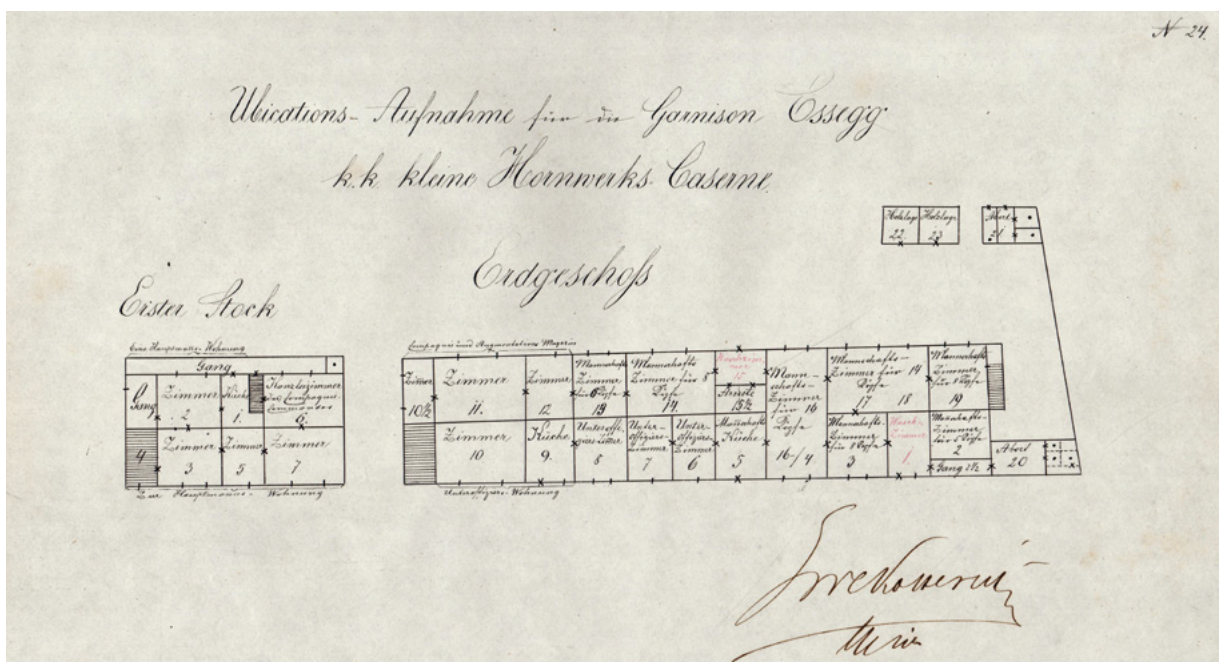 N 24.
Ubications-Aufnahme für die Garnison Essegg
k.k. kleine Hornwerks-Caserne.
Holzlage
22.
Holzlage
23
Abort
21
Erdgeschoß
Erster Stock
Eine Hauptmanns-Wohnung
Gang
Gang
Zimmer
2
Küche
1.
Kanzleizimmer
des Compagnie-
Commandos
6.
4
Zimmer
3
Zimmer
5
Zimmer
7
Zur Hauptmanns-Wohnung
Compagnie und Augmentations Magazin
Zimmer
10½
Zimmer
11.
Zimmer
12
Mannschafts
Zimmer
für 6 Köpfe
13
Mannschafts
Zimmer für 8
Köpfe
14.
15
Arreste
15½
Mann-
schafts-
Zimmer
für 16
Köpfe
16-/4
Mannschafts-
Zimmer für 14
Köpfe
17
18
Mannschafts
Zimmer
für 8 Köpfe
19
Zimmer
10
Küche
9.
Unteroffi-
ziers-Zimmer
8
Unter-
offiziers-
Zimmer
7
Unter-
offiziers-
Zimmer
6
Mannschafts
Küche
5
Mannschafts-
Zimmer
für 8 Köpfe
3
1
Mannschafts-
Zimmer
2
Gang 2½
Abort
20
Unteroffiziers-Wohnung